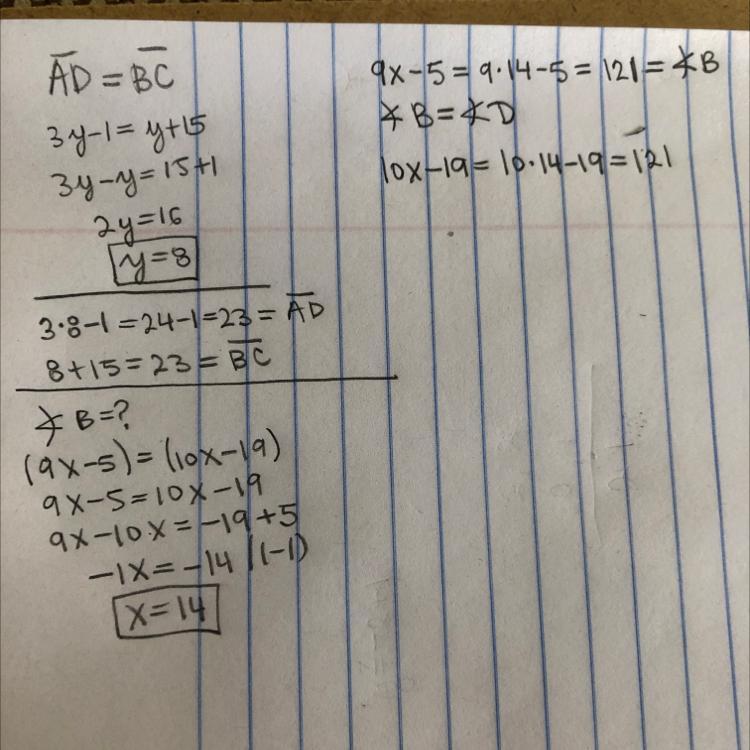 A̅D̅ = B̅C̅
3y-1 = y+15
3y-y = 15+1
2y=16
y=8
3·8-1 = 24-1 = 23 = A̅D̅
8+15 = 23 = B̅C̅
∡ B=?
(9x-5) = (10x-19)
9x-5 = 10x-19
9x-10x = -19+5
-1x = -14 |(-1)
x=14
9x-5 = 9·14-5 = 121 = ∡B
∡ B = ∡D
10x-19 = 10·14-19 = 121